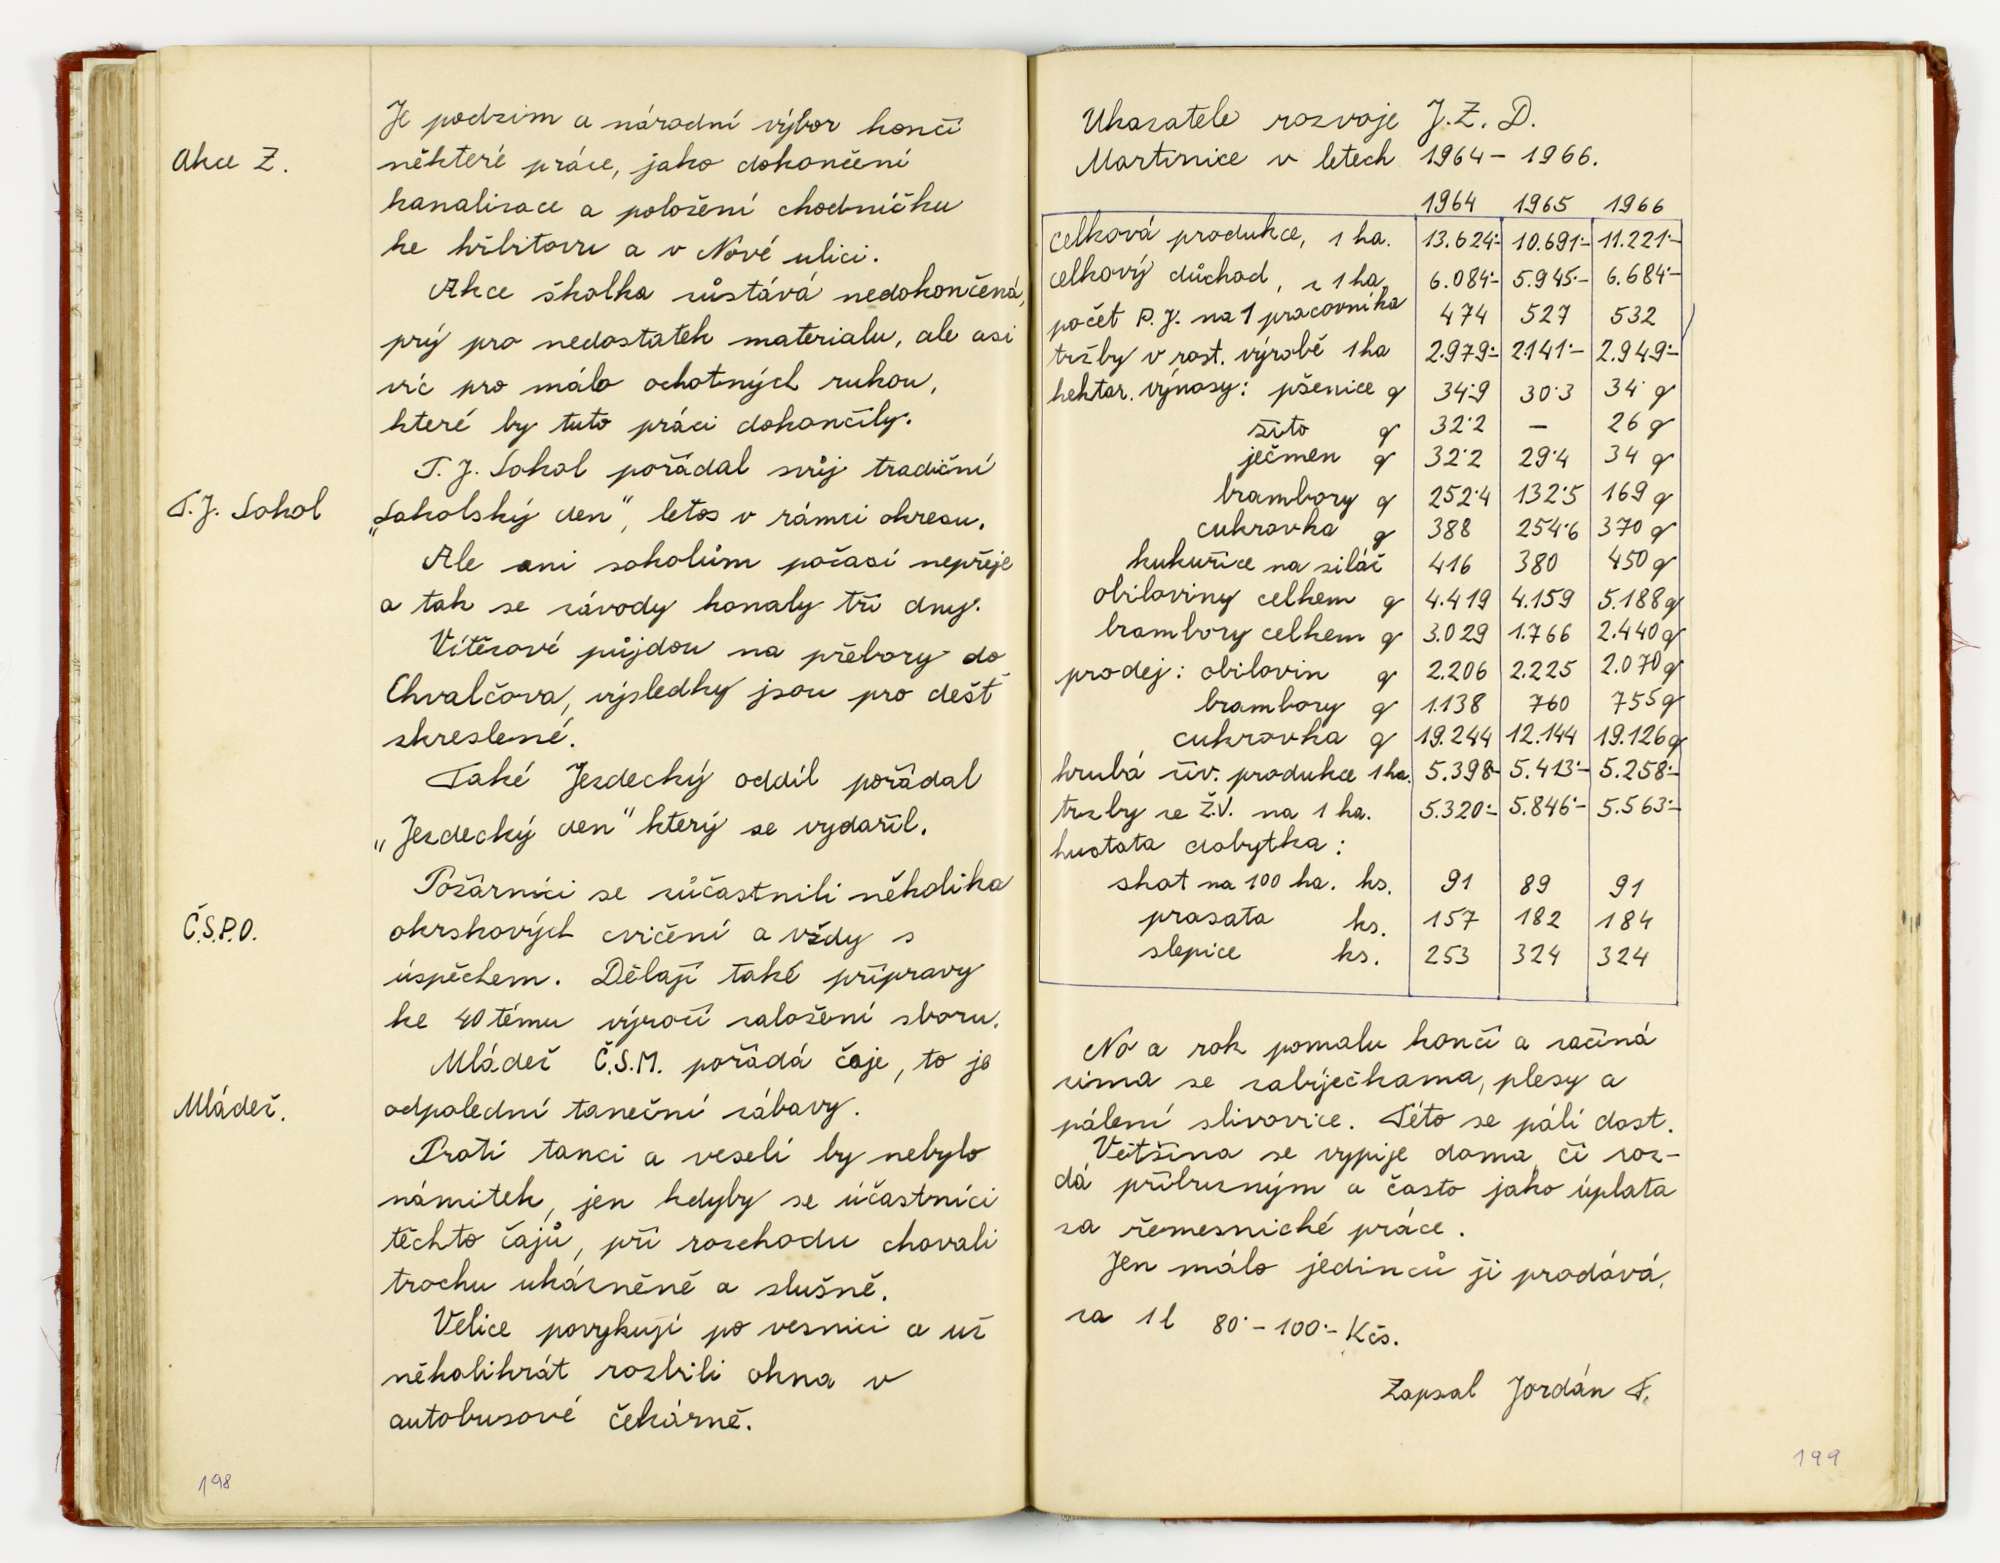 Je podzim a národní výbor končí
Akce Z.
některé práce, jako dokončení
kanalizace a položení chodníčku
ke hřbitovu a v Nové ulici.
Akce školka zůstává nedokončená,
prý pro nedostatek materialu, ale asi
víc pro málo ochotných rukou,
které by tuto práci dokončily.
T.J. Sokol pořádal svůj tradiční
T.J. Sokol
„Sokolský den", letos v rámci okresu.
Ale ani sokolům počasí nepřeje
a tak se závody konaly tři dny.
Vítězové půjdou na přebory do
Chvalčova, výsledky jsou pro déšť
zkreslené.
Také Jezdecký oddíl pořádal
„Jezdecký den" který se vydařil.
Požárníci se zúčastnili několika
Č.S.P.O.
okrskových cvičení a vždy s
úspěchem. Dělají také přípravy
ke 40 tému výročí založení sboru.
Mládež Č.S.M. pořádá čaje, to je
Mládež.
odpolední taneční zábavy.
Proti tanci a veselí by nebylo
námitek, jen kdyby se účastníci
těchto čajů, při rozchodu chovali
trochu ukázněně a slušně.
Velice povykují po vesnici a už
několikrát rozbili okna v
autobusové čekárně.
198
Ukazatele rozvoje J.Z.D.
Martinice v letech 1964 - 1966.
1964 1965 1966
celková produkce, 1 ha. 13.624·- 10.691·- 11.221·-
celkový důchod, z 1 ha. 6.084·- 5.945·- 6.684·-
počet P.J. na 1 pracovníka 474 527 532
tržby v rost. výrobě 1 ha 2.979·- 2.141·- 2.949·-
hektar. výnosy: pšenice q 34·9 30·3 34· q
žito q 32·2 — 26 q
ječmen q 32·2 29·4 34 q
brambory q 252·4 132·5 169 q
cukrovka q 388 254·6 370 q
kukuřice na siláž 416 380 450 q
obiloviny celkem q 4.419 4.159 5.188 q
brambory celkem q 3.029 1.766 2.440 q
prodej: obilovin q 2.206 2.225 2.070 q
brambory q 1.138 760 755 q
cukrovka q 19.244 12.144 19.126 q
hrubá živ. produkce 1 ha. 5.398- 5.413·- 5.258·-
tržby ze Ž.V. na 1 ha. 5.320·- 5.846·- 5.563·-
hustota dobytka:
skot na 100 ha. ks. 91 89 91
prasata ks. 157 182 184
slepice ks. 253 324 324
No a rok pomalu končí a začíná
zima se zabíječkama, plesy a
pálení slivovice. Této se pálí dost.
Většina se vypije doma či roz-
dá příbuzným a často jako úplata
za řemesnické práce.
Jen málo jedinců ji prodává,
za 1 l 80·- 100·- Kčs.
Zapsal Jordán F.
199